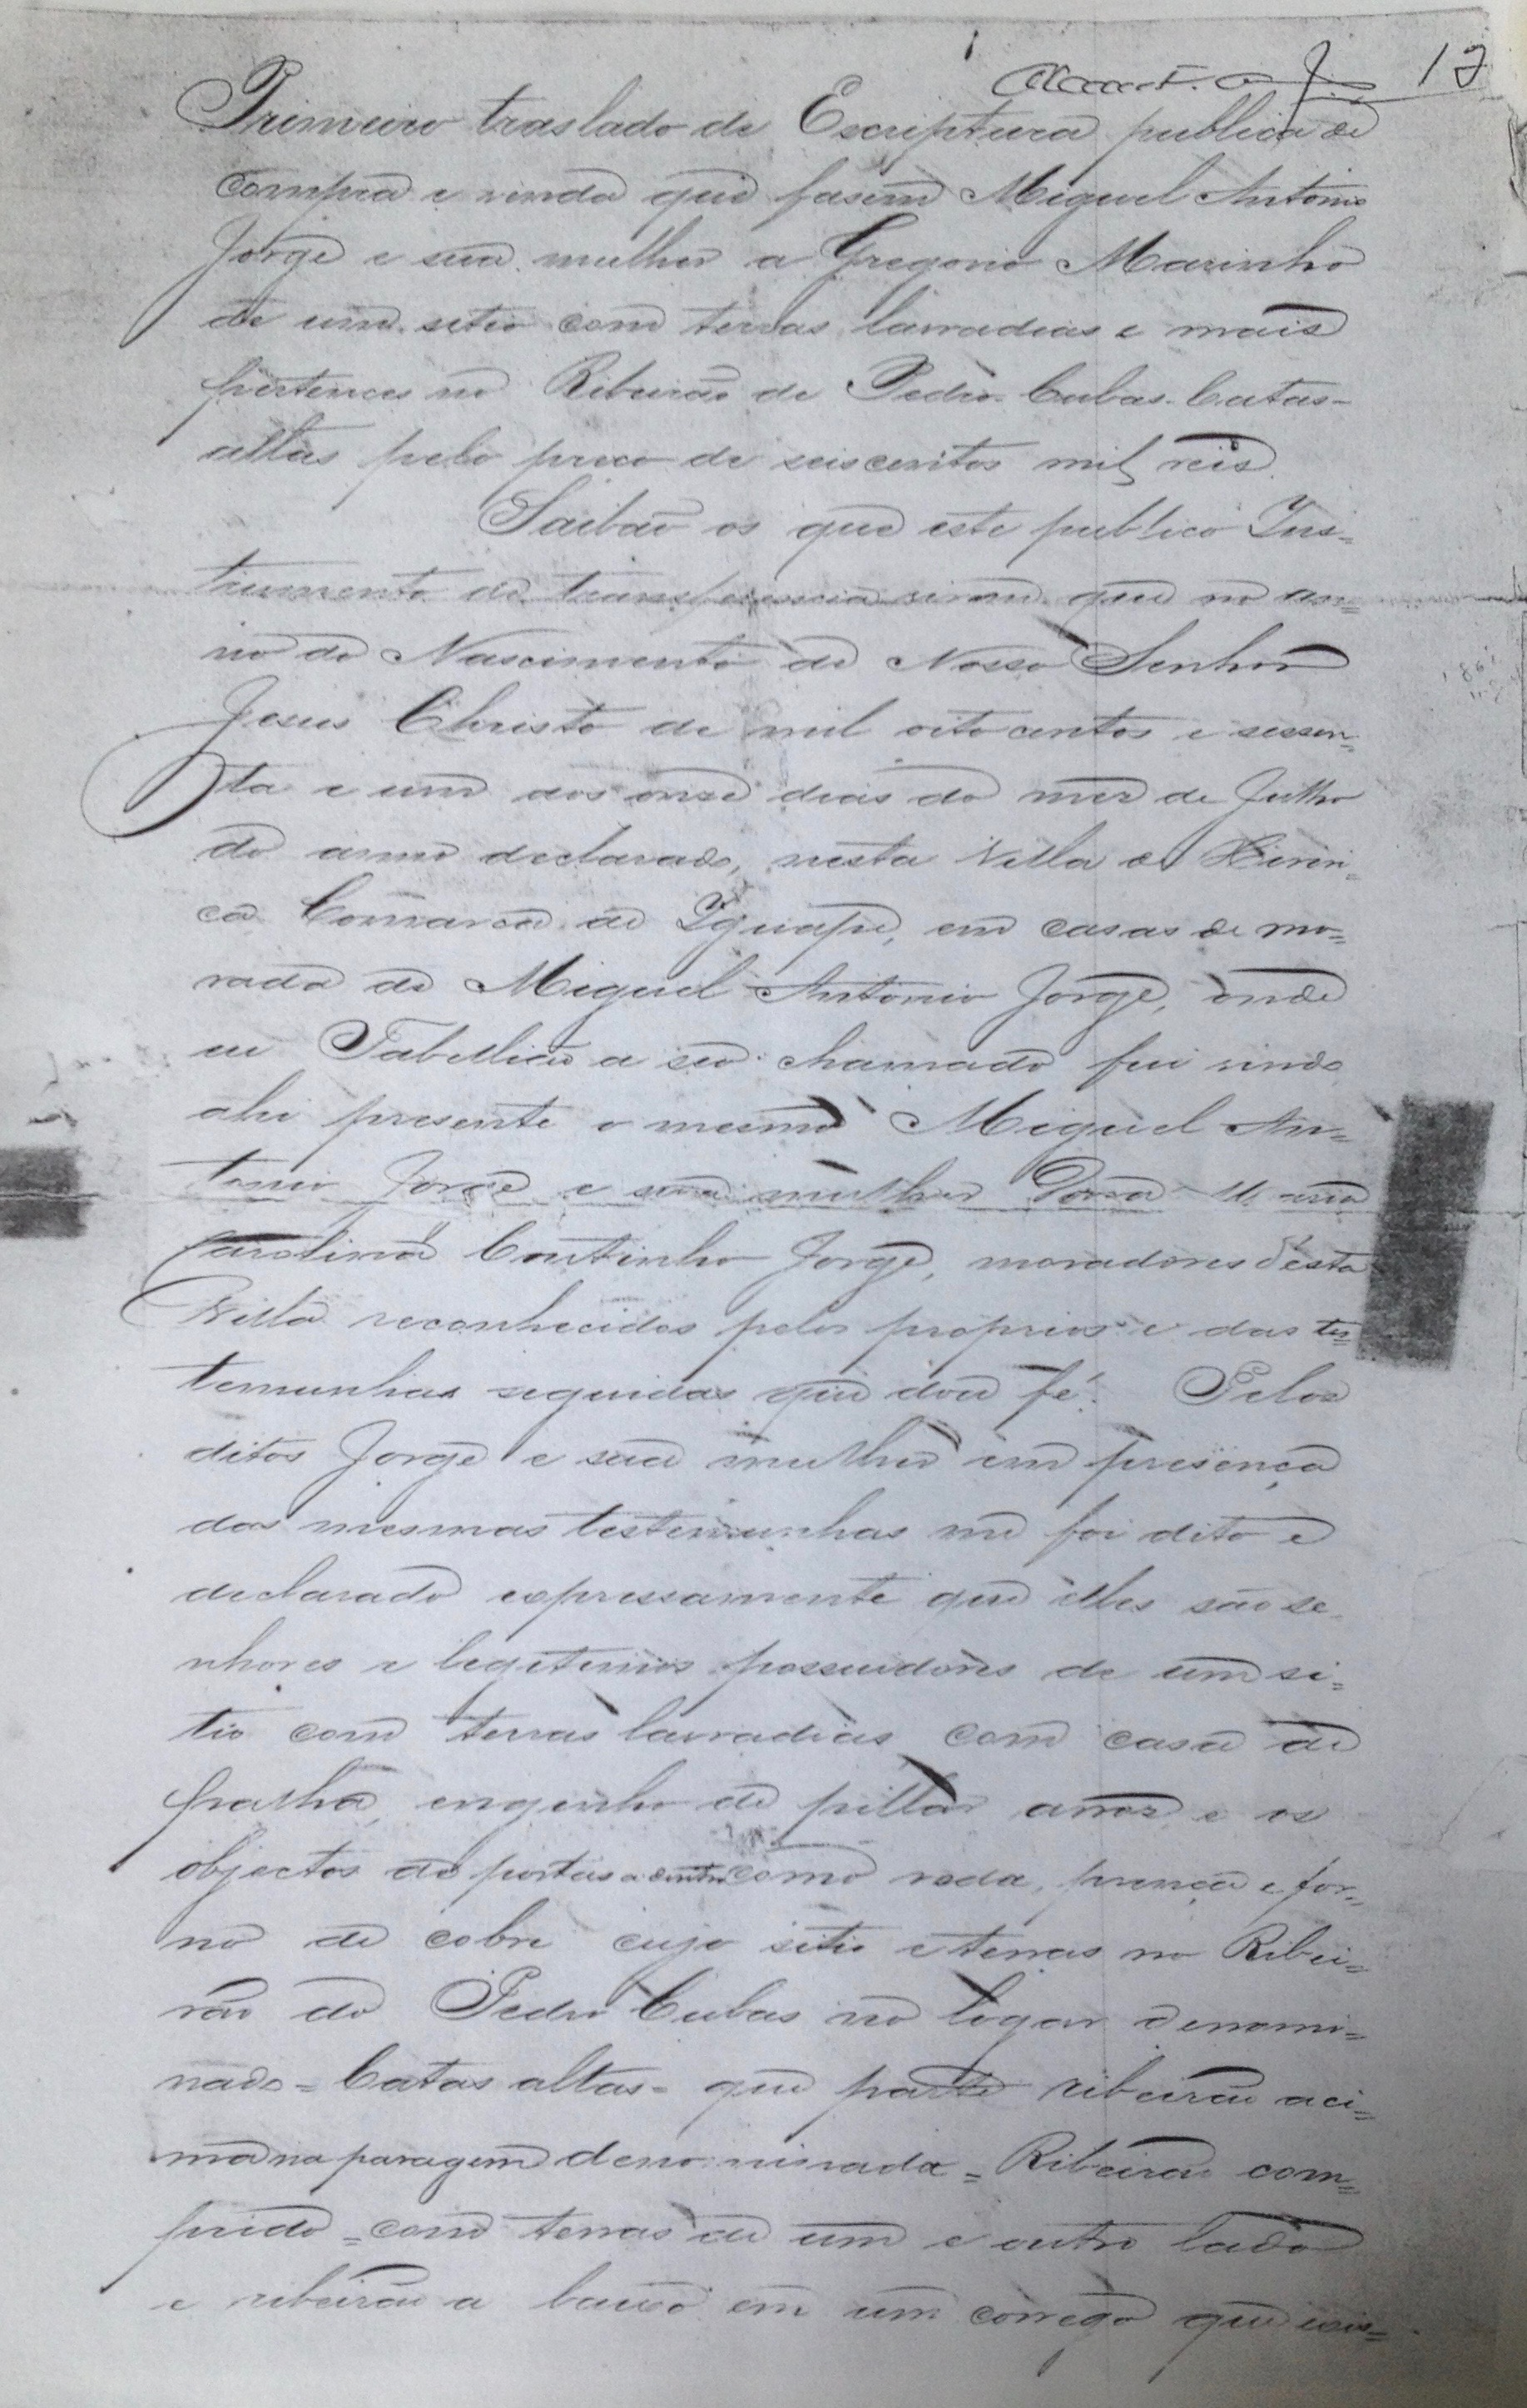 12
Primeiro traslado de Escriptura publica de
compra e venda que fasem Miguel Antonio
Jorge e sua mulher a Gregorio Marinho
de um sitio com terras lavradias e mais
pertences no Ribeirão de Pedro Cubas Catas-
altas pelo preco de seis centos mil reis.
Saibão os que este publico Ins=
trumento de transferencia virem que no an=
no do Nascimento de Nosso Senhor
Jesus Christo de mil oito centos e sessen=
ta e um aos onze dias do mez de Julho
do anno declarado, nesta Villa de Xiriri=
ca Comarca de Iguape, em casas de mo=
rada de Miguel Antonio Jorge, onde
eu Tabellião a seo chamado fui vindo
ahi presente o mesmo Miguel An=
tonio Jorge e sua mulher Dona Maria
Carolina Coutinho Jorge, moradores d'esta
Villa reconhecidos pelos proprios e das tes=
temunhas seguidas que dou fé. Pelos
ditos Jorge e sua mulher em presença
das mesmas testemunhas me foi dito e
declarado expressamente que elles são se=
nhores e legitimos possuidores de um si=
tio com terras lavradias com casa de
palha, engenho de pillar arroz e os
objectos de portas a dentro como roda, prença e for=
no de cobre cujo sitio e terras no Ribei=
rão do Pedro Cubas no logar denomi=
nado = Catas altas = que parte ribeirão aci=
ma na paragem denominada = Ribeirão com=
prido = com terras de um e outro lado
e ribeirão a baixo em um corrego que exis=